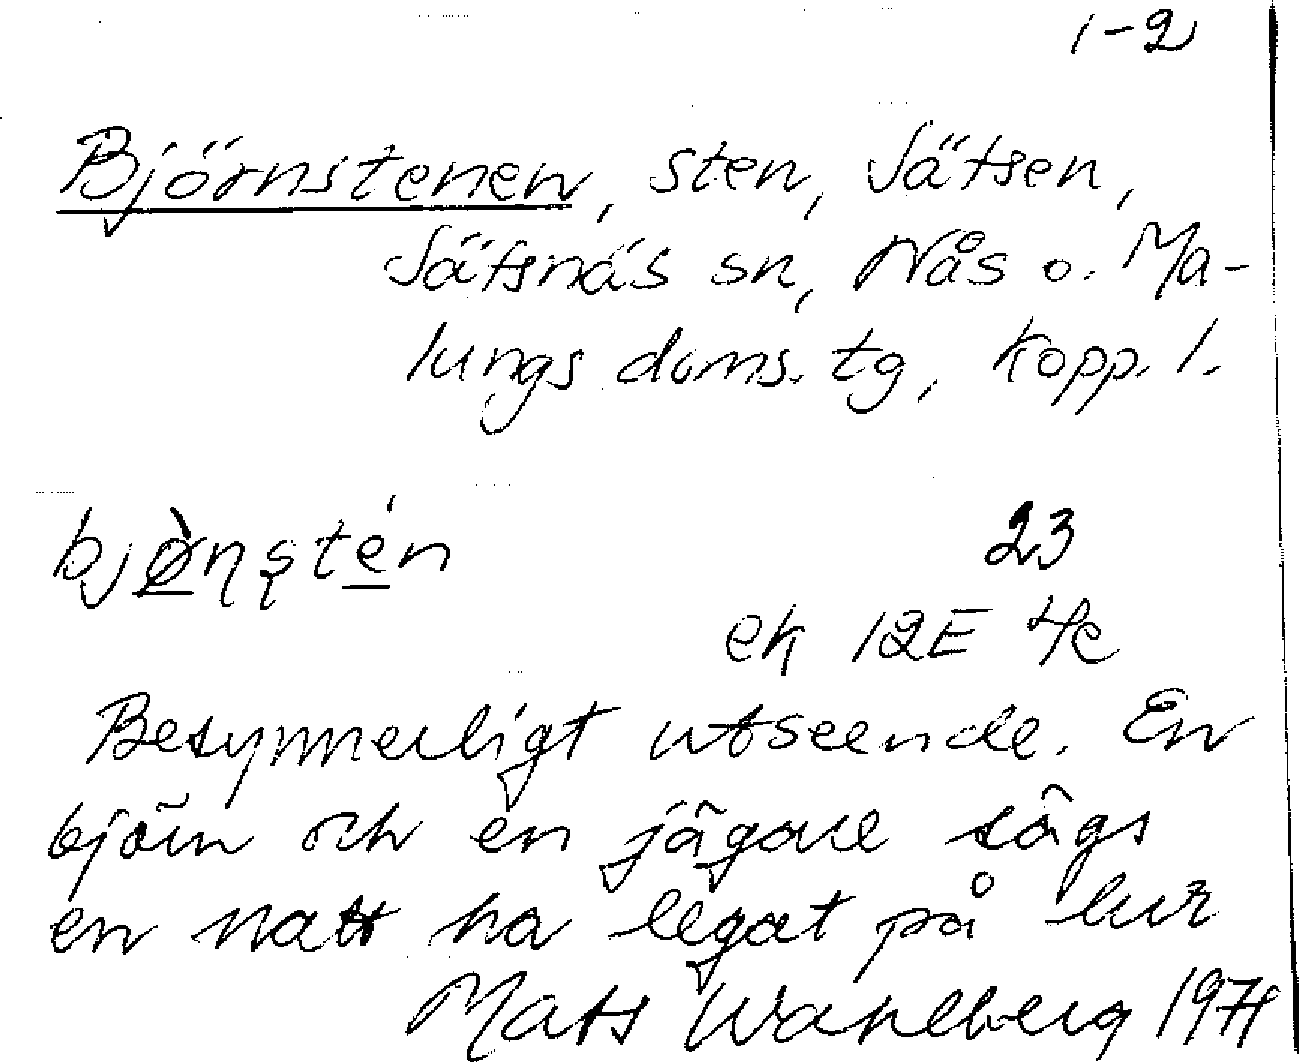 1-2
Björnstenen, sten, Sätsen,
Sätsnäs sn, Nås o. Ma-
lungs doms. tg, Kopp. l.
bjø̀ṇṣtén 23
ek 12E 4c
Besynnerligt utseende. En
björn och en jägare sägs
en natt ha legat på lur
Mats Wahlberg 1971